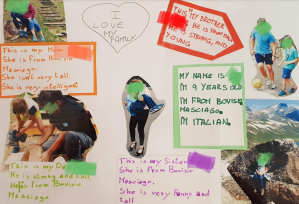 I
LOVE
MY
FAMILY
THIS IS MY BROTHER
HE IS FROM
HE IS STRONG, AND
YOUNG
This is my Mom
She is from Bovisio
Masciago.
She isn't very tall.
She is very intelligent
MY NAME IS
I'M 9 YEARS OLD
I'M FROM BOVISIO
MASCIAGO.
I'M ITALIAN.
This is my
He is strong and tall
He is from Bovisio
Masciago
This is my Sister
She is from Bovisio
Masciago.
She is very funny and
tall